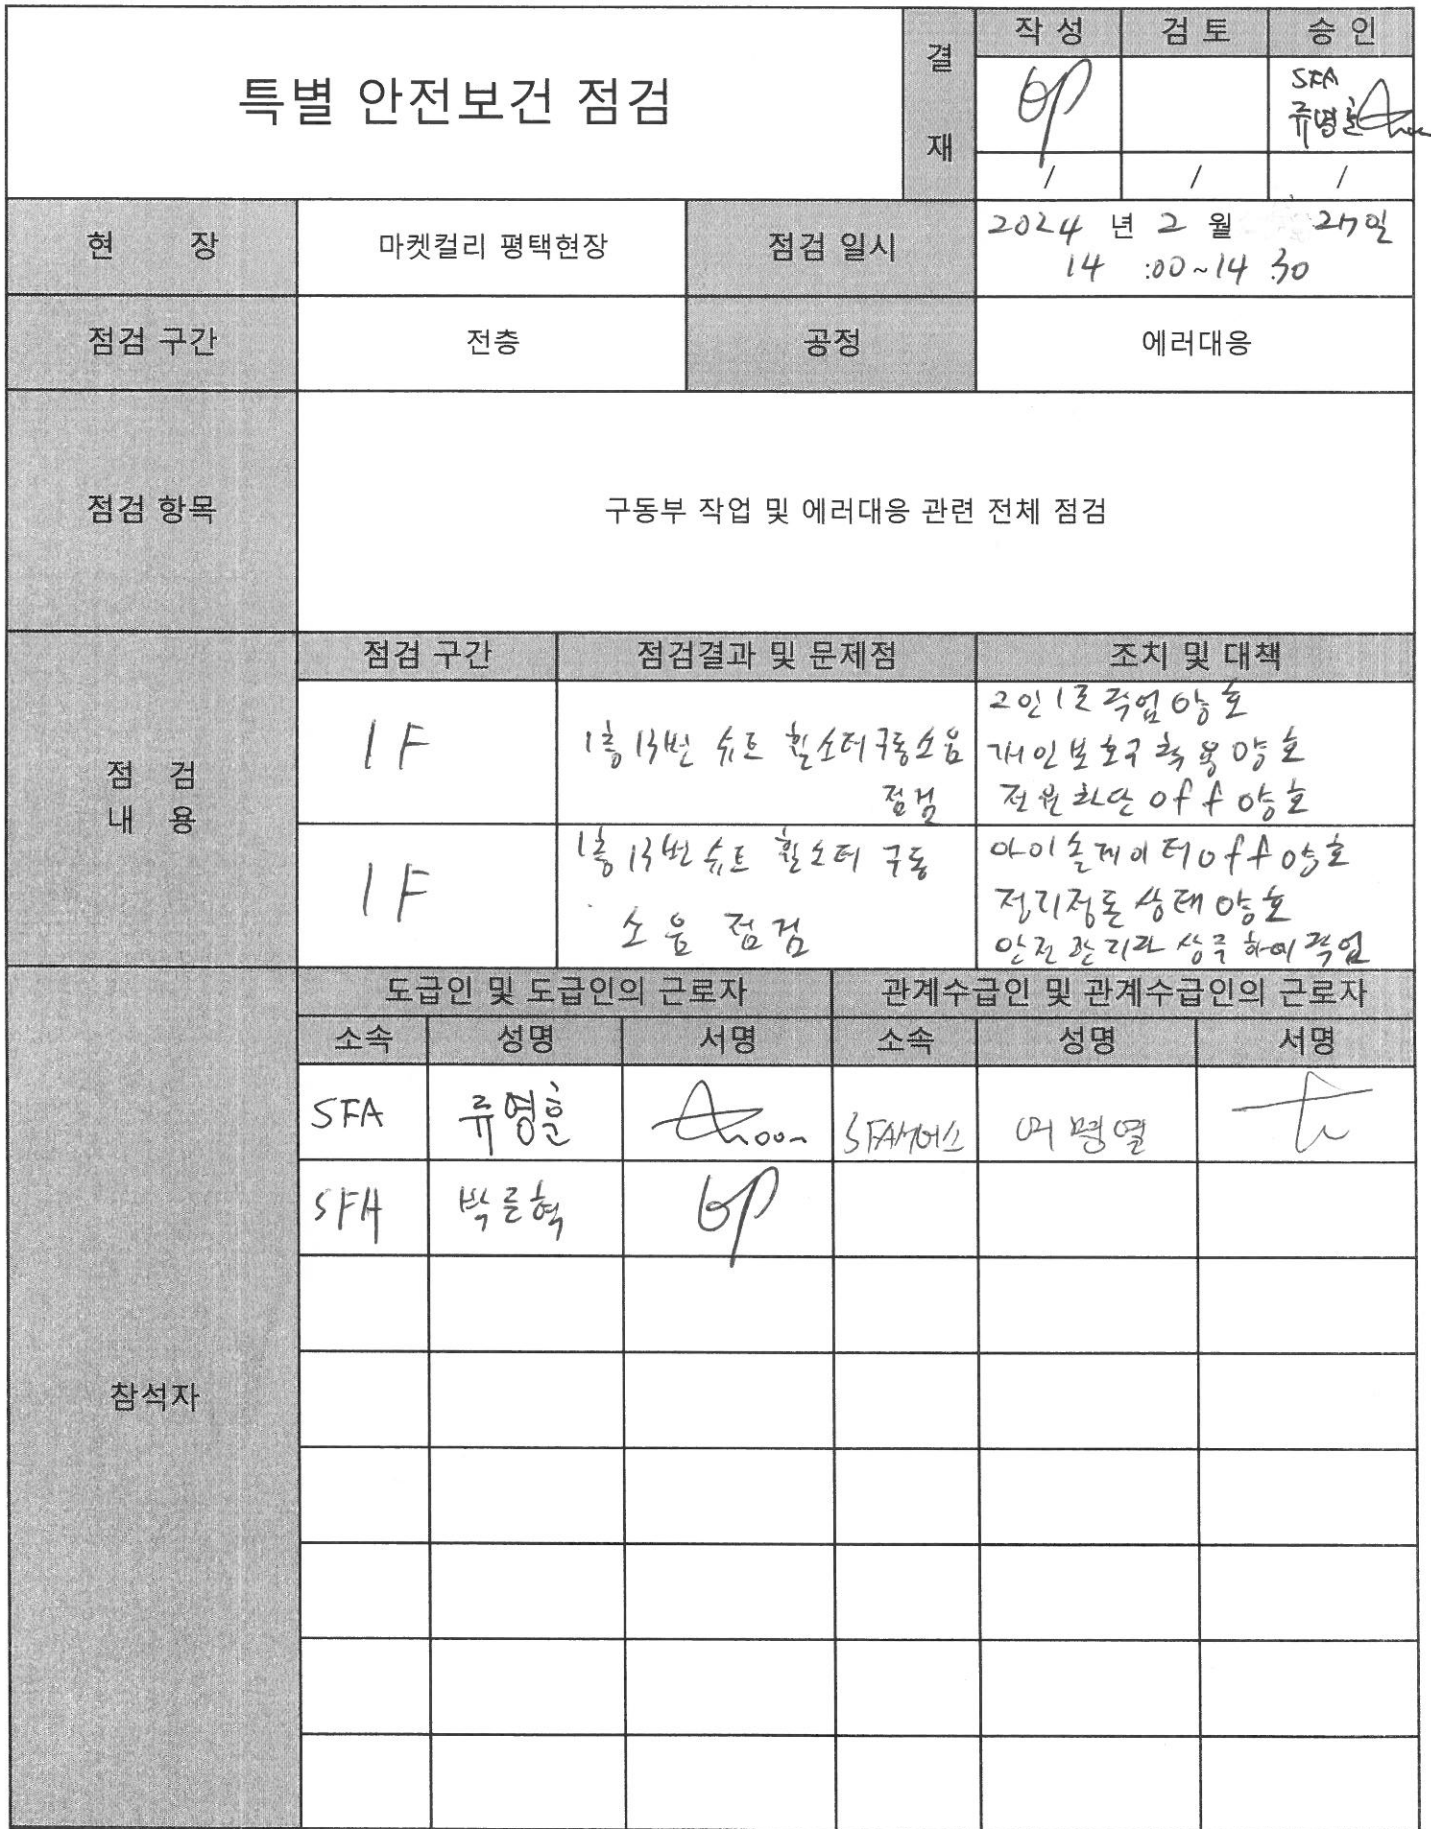 특별 안전보건 점검
결 재
작 성 검 토 승 인
SFA
류명훈
/ / /
현 장 마켓컬리 평택현장 점검 일시 2024 년 2 월 27일
14 :00~14 :30
점검 구간 전층 공정 에러대응
점검 항목 구동부 작업 및 에러대응 관련 전체 점검
점 검
내 용
점검 구간 점검결과 및 문제점 조치 및 대책
1F
1층 13번 슈트 휠소터 구동소음
점검
2인1조 작업 양호
개인보호구 착용 양호
전원차단 off 양호
1F
1층 13번 슈트 휠소터 구동
소음 점검
아이솔레이터 off 양호
정리정돈 상태 양호
안전관리자 상주하에 작업
참석자
도급인 및 도급인의 근로자 관계수급인 및 관계수급인의 근로자
소속 성명 서명 소속 성명 서명
SFA 류명훈 SFA서비스
SFA